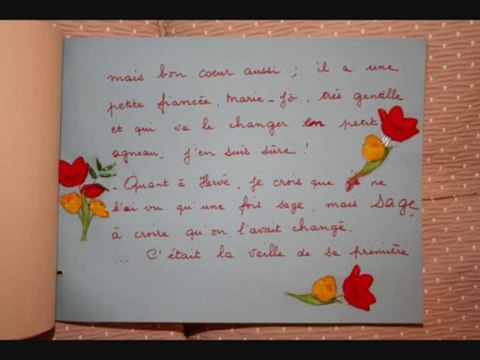 mais bon coeur aussi ; il a une
petite fiancée, Marie-Jo, très gentille
et qui va le changer en petit
agneau, j'en suis sûre !
. Quant à Hervé, je crois que je ne
l'ai vu qu'une fois sage, mais sage,
à croire qu'on l'avait changé.
... C'était la veille de sa première